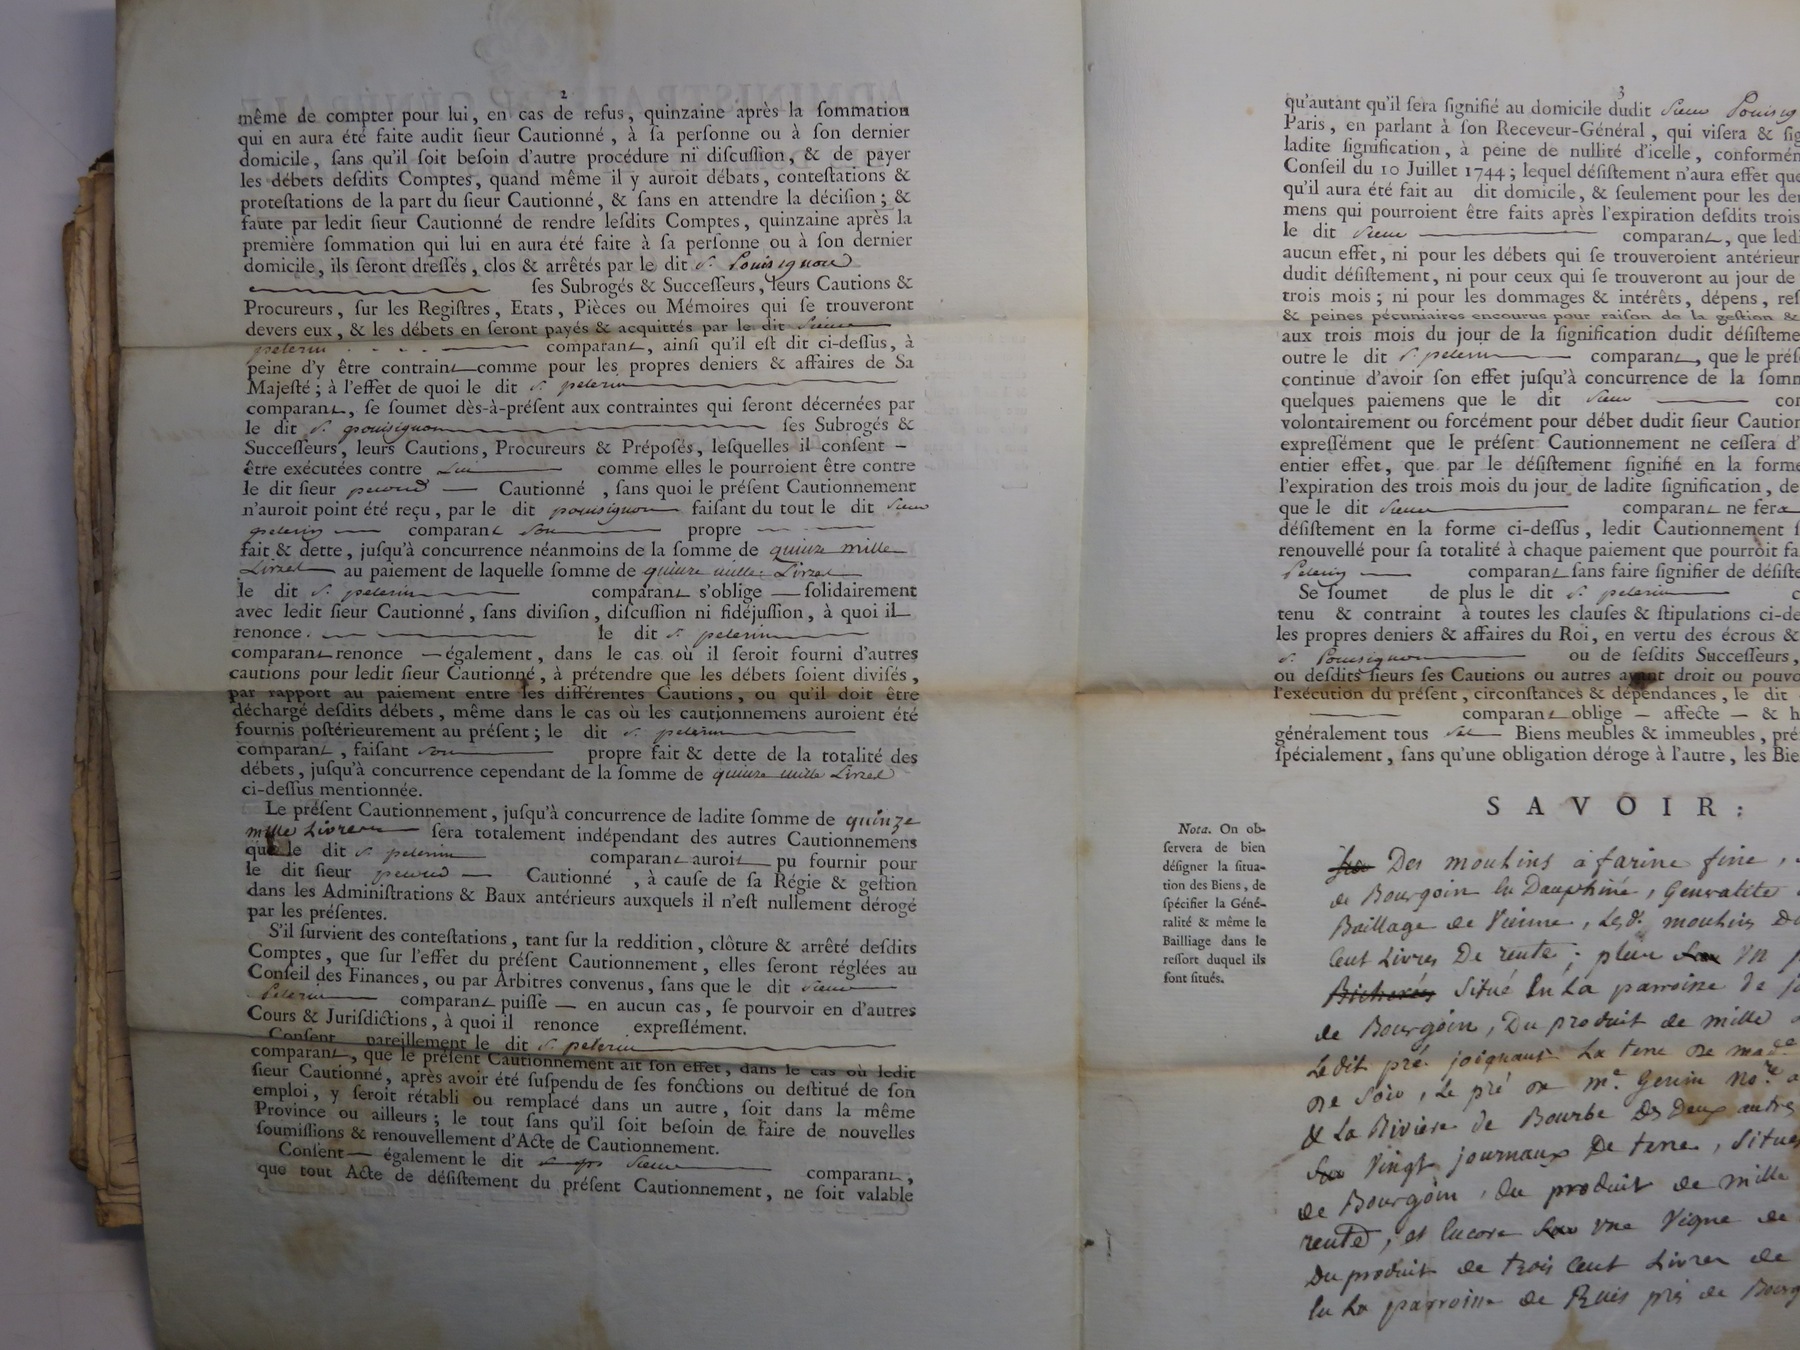 2
même de compter pour lui, en cas de refus, quinzaine après la sommation
qui en aura été faite audit sieur Cautionné, à sa personne ou à son dernier
domicile, sans qu'il soit besoin d'autre procédure ni discussion, & de payer
les débets desdits Comptes, quand même il y auroit débats, contestations &
protestations de la part du sieur Cautionné, & sans en attendre la décision; &
faute par ledit sieur Cautionné de rendre lesdits Comptes, quinzaine après la
première sommation qui lui en aura été faite à sa personne ou à son dernier
domicile, ils seront dressés, clos & arrêtés par le dit S.
ses Subrogés & Successeurs, leurs Cautions &
Procureurs, sur les Registres, Etats, Pièces ou Mémoires qui se trouveront
devers eux, & les débets en seront payés & acquittés par le dit Sieur
pelerin comparant, ainsi qu'il est dit ci-dessus, à
peine d'y être contraint comme pour les propres deniers & affaires de Sa
Majesté; à l'effet de quoi le dit S. pelerin
comparant, se soumet dès-à-présent aux contraintes qui seront décernées par
le dit S. pouisignon ses Subrogés &
Successeurs, leurs Cautions, Procureurs & Préposés, lesquelles il consent
être exécutées contre Lui comme elles le pourroient être contre
le dit sieur Cautionné, sans quoi le présent Cautionnement
n'auroit point été reçu, par le dit pouisignon faisant du tout le dit Sieur
pelerin comparant son propre
fait & dette, jusqu'à concurrence néanmoins de la somme de quinze mille
Livres au paiement de laquelle somme de quinze mille Livres
le dit S. pelerin comparant s'oblige solidairement
avec ledit sieur Cautionné, sans division, discussion ni fidéjussion, à quoi il
renonce. le dit S. pelerin
comparant renonce également, dans le cas où il seroit fourni d'autres
cautions pour ledit sieur Cautionné, à prétendre que les débets soient divisés,
par rapport au paiement entre les différentes Cautions, ou qu'il doit être
déchargé desdits débets, même dans le cas où les cautionnemens auroient été
fournis postérieurement au présent; le dit S. pelerin
comparant, faisant son propre fait & dette de la totalité des
débets, jusqu'à concurrence cependant de la somme de quinze mille Livres
ci-dessus mentionnée.
Le présent Cautionnement, jusqu'à concurrence de ladite somme de quinze
mille Livres sera totalement indépendant des autres Cautionnemens
que le dit S. pelerin comparant auroit pu fournir pour
le dit sieur Cautionné, à cause de sa Régie & gestion
dans les Administrations & Baux antérieurs auxquels il n'est nullement dérogé
par les présentes.
S'il survient des contestations, tant sur la reddition, clôture & arrêté desdits
Comptes, que sur l'effet du présent Cautionnement, elles seront réglées au
Conseil des Finances, ou par Arbitres convenus, sans que le dit Sieur
Pelerin comparant puisse en aucun cas, se pourvoir en d'autres
Cours & Jurisdictions, à quoi il renonce expressément.
Consent pareillement le dit S. pelerin
comparant, que le présent Cautionnement ait son effet, dans le cas où ledit
sieur Cautionné, après avoir été suspendu de ses fonctions ou destitué de son
emploi, y seroit rétabli ou remplacé dans un autre, soit dans la même
Province ou ailleurs; le tout sans qu'il soit besoin de faire de nouvelles
soumissions & renouvellement d'Acte de Cautionnement.
Consent également le dit Sieur comparant,
que tout Acte de désistement du présent Cautionnement, ne soit valable
3
qu'autant qu'il sera signifié au domicile dudit Sieur
Paris, en parlant à son Receveur-Général, qui visera &
ladite signification, à peine de nullité d'icelle,
Conseil du 10 Juillet 1744; lequel désistement n'aura effet
qu'il aura été fait au dit domicile, & seulement pour les
mens qui pourroient être faits après l'expiration desdits trois
le dit Sieur comparant, que
aucun effet, ni pour les débets qui se trouveroient
dudit désistement, ni pour ceux qui se trouveront au jour de
trois mois; ni pour les dommages & intérêts, dépens,
& peines pécuniaires encourus pour raison de la gestion &
aux trois mois du jour de la signification dudit
outre le dit S. pelerin comparant, que le
continue d'avoir son effet jusqu'à concurrence de la
quelques paiemens que le dit Sieur
volontairement ou forcément pour débet dudit sieur
expressément que le présent Cautionnement ne cessera
entier effet, que par le désistement signifié en la forme
l'expiration des trois mois du jour de ladite signification,
que le dit Sieur comparant ne fera
désistement en la forme ci-dessus, ledit Cautionnement
renouvellé pour sa totalité à chaque paiement que pourroit
Pelerin comparant sans faire signifier de
Se soumet de plus le dit S. pelerin
tenu & contraint à toutes les clauses & stipulations
les propres deniers & affaires du Roi, en vertu des écrous &
S. Pouisignon ou de sesdits Successeurs,
ou desdits sieurs ses Cautions ou autres ayant droit ou
l'exécution du présent, circonstances & dépendances, le dit
comparant oblige affecte &
généralement tous Biens meubles & immeubles,
spécialement, sans qu'une obligation déroge à l'autre, les
SAVOIR:
Nota. On ob-
servera de bien
désigner la situa-
tion des Biens, de
spécifier la Géné-
ralité & même le
Bailliage dans le
ressort duquel ils
sont situés.
Des moulins a farine fine,
de Bourgoin En Dauphiné, Generalité
Baillage de Vienne, Lesd. moulins
Cent Livres De rente; plus Un
situé En La parroisse de
de Bourgoin, Du produit de mille
Ledit pré joignant La terre de mad.e
de Le pré de m.e No.re
& La Riviere de Bourbe Des Deux autres
Vingt journaux De terre, Situés
de Bourgoin, du produit de mille
rente, et Encore Une Vigne de
Du produit de trois Cent Livres de
En La parroisse de près de